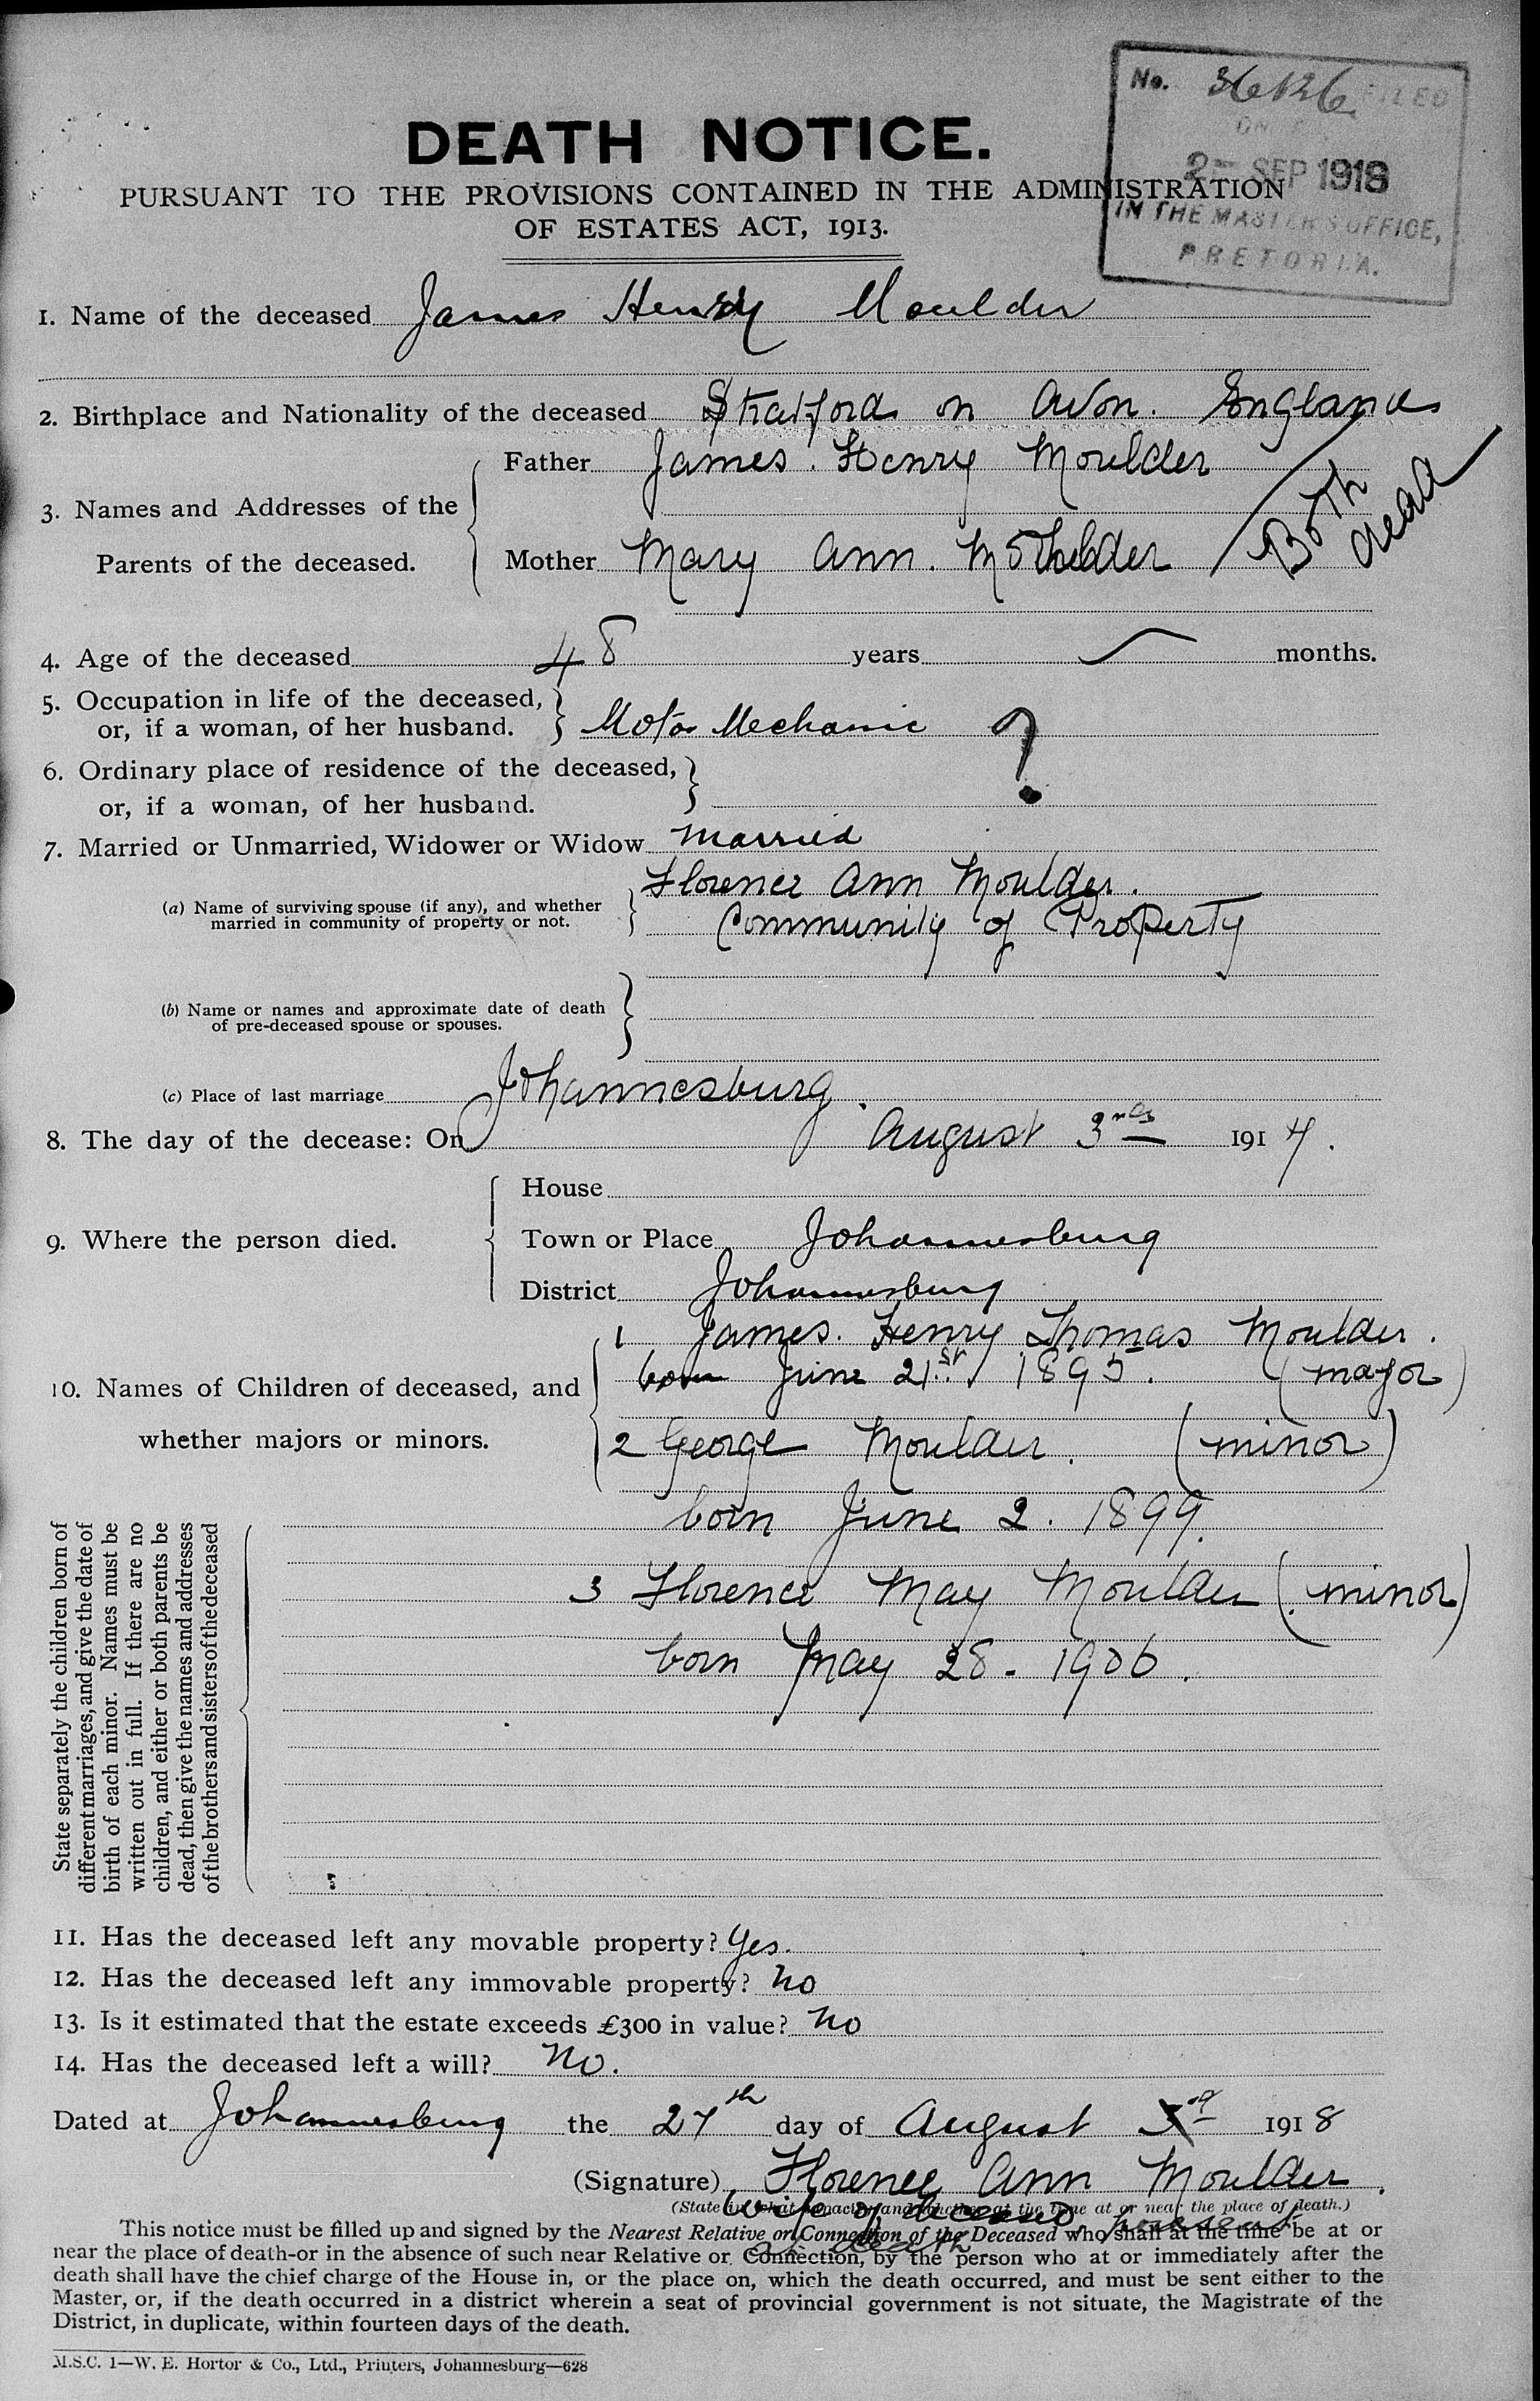 No. 36126 FILED
ON
2- SEP 1918
IN THE MASTER'S OFFICE,
PRETORIA.
DEATH NOTICE.
PURSUANT TO THE PROVISIONS CONTAINED IN THE ADMINISTRATION
OF ESTATES ACT, 1913.
1. Name of the deceased James Henry Moulder
2. Birthplace and Nationality of the deceased Stratford on Avon. England
3. Names and Addresses of the
Parents of the deceased.
Father James. Henry Moulder
Mother Mary Ann. Moulder
Both
dead
4. Age of the deceased 48 years months.
5. Occupation in life of the deceased,
or, if a woman, of her husband. Motor Mechanic
6. Ordinary place of residence of the deceased,
or, if a woman, of her husband. ?
7. Married or Unmarried, Widower or Widow married
(a) Name of surviving spouse (if any), and whether
married in community of property or not.
Florence Ann Moulder.
Community of Property
(b) Name or names and approximate date of death
of pre-deceased spouse or spouses.
(c) Place of last marriage Johannesburg.
8. The day of the decease: On August 3rd 191
9. Where the person died.
House
Town or Place Johannesburg
District Johannesburg
10. Names of Children of deceased, and
whether majors or minors.
1 James. Henry Thomas Moulder.
born June 21st 1895. (major)
2 George Moulder. (minor)
born June 2. 1899.
3 Florence May Moulder (minor)
born May 28 - 1906.
State separately the children born of
different marriages, and give the date of
birth of each minor. Names must be
written out in full. If there are no
children, and either or both parents be
dead, then give the names and addresses
of the brothers and sisters of the deceased
11. Has the deceased left any movable property? Yes.
12. Has the deceased left any immovable property? No
13. Is it estimated that the estate exceeds £300 in value? No
14. Has the deceased left a will? No.
Dated at Johannesburg the 27th day of August 3rd 1918
(Signature) Florence Ann Moulder.
(State in what capacity and whether at the time at or near the place of death.)
wife of deceased present
at death
This notice must be filled up and signed by the Nearest Relative or Connection of the Deceased who shall at the time be at or
near the place of death-or in the absence of such near Relative or Connection, by the person who at or immediately after the
death shall have the chief charge of the House in, or the place on, which the death occurred, and must be sent either to the
Master, or, if the death occurred in a district wherein a seat of provincial government is not situate, the Magistrate of the
District, in duplicate, within fourteen days of the death.
M.S.C. 1—W. E. Hortor & Co., Ltd., Printers, Johannesburg—628